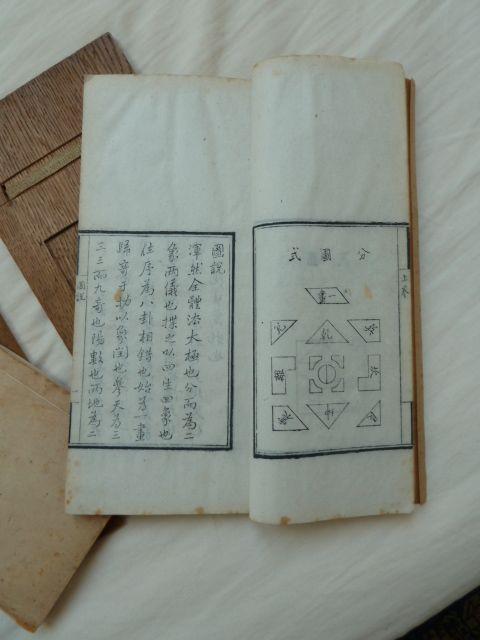 分圖式
上卷
一畫
乾
兌
坤
圖說
渾然全體法太極也分而為二
象兩儀也揲之以四生四象也
位序為八卦相錯也始為一畫
歸奇于扐以象閏也參天為三
三三而九奇也陽數也兩地為二
圖說